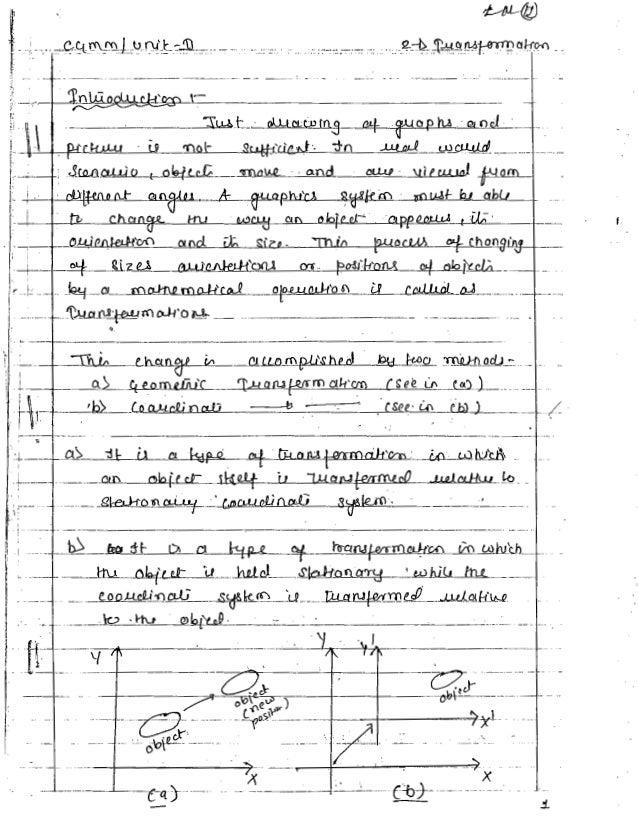 CGMM/Unit-II
2-D Transformation
Introduction :-
Just drawing of graphs and
picture is not sufficient. In real world
scenario, objects move and are viewed from
different angles. A graphics system must be able
to change the way an object appears, its
orientation and its size. This process of changing
of sizes orientations or positions of objects
by a mathematical operation is called as
Transformations
This change is accomplished by two methods-
a) Geometric Transformation (see in (a))
b) Coordinate —— " —— (see in (b))
a) It is a type of transformation in which
an object itself is transformed relative to
stationary coordinate system.
b) It is a type of transformation in which
the object is held stationary while the
coordinate system is transformed relative
to the object.
Y
object
object
(new
position)
X
(a)
Y
Y'
object
X'
X
(b)
1